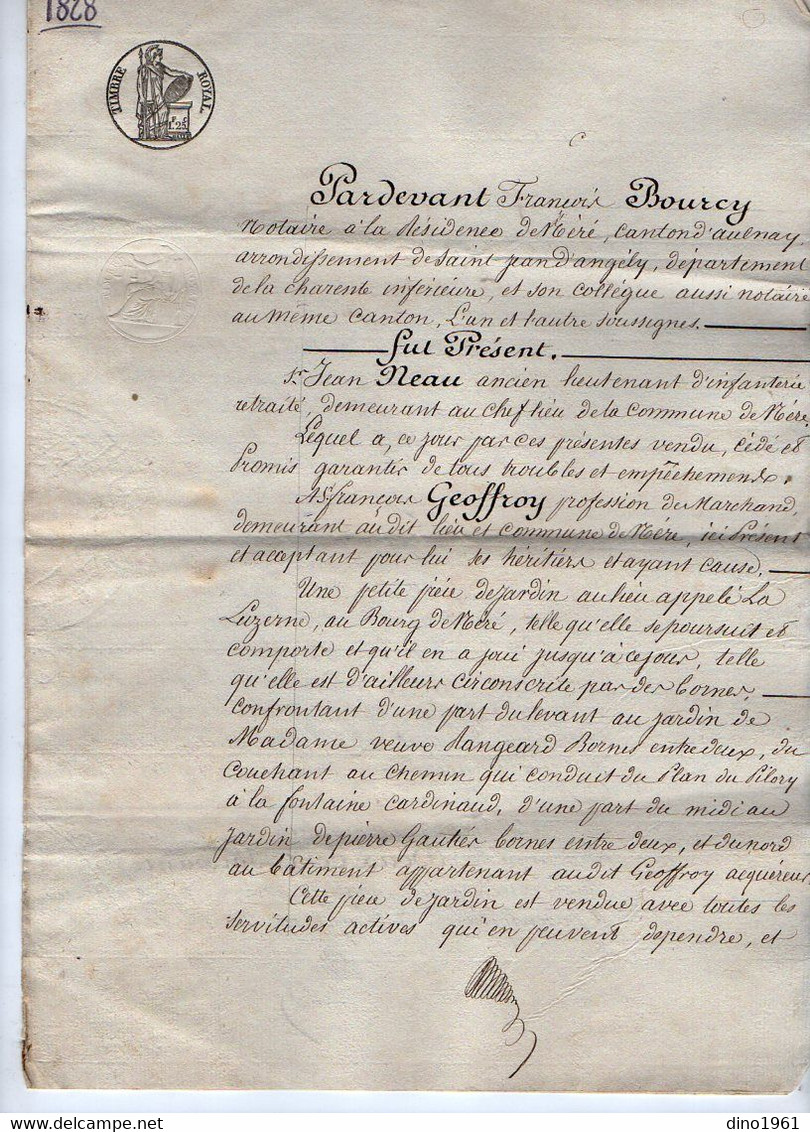 1828
TIMBRE ROYAL
1.25
Pardevant François Bourcy
Notaire à la Résidence de Néré, canton d'aulnay,
arrondissement de Saint jean d'angély, département
de la charente inférieure, et son collégue aussi notaire
au même canton, L'un et l'autre soussignés.
fut Présent.
Sr. Jean Neau ancien lieutenant d'infanterie
retraité, demeurant au chef lieu de la commune de Néré,
Lequel a, ce jour par ces présentes vendu, cédé et
Promis garantir de tous troubles et empêchements.
A Sr. françois Geoffroy profession de Marchand,
demeurant audit lieu et commune de Néré, ici Présent
et acceptant pour lui ses héritiers et ayant cause.
Une petite pièce de jardin au lieu appelé La
Luzerne, au Bourg de Néré, telle qu'elle se poursuit et
comporte et qu'il en a joui jusqu'à ce jour, telle
qu'elle est d'ailleurs circonscrite par des bornes,
confrontant d'une part du levant au jardin de
Madame veuve Rangeard Bornes entre deux, du
Couchant au chemin qui conduit du Plan du Pilory
à la fontaine Cardinaud, d'une part du midi au
jardin de pierre Gautier bornes entre deux, et du nord
au bâtiment appartenant audit Geoffroy acquéreur
Cette pièce de jardin est vendue avec toutes les
Servitudes actives qui en peuvent dependre, et
dino1961